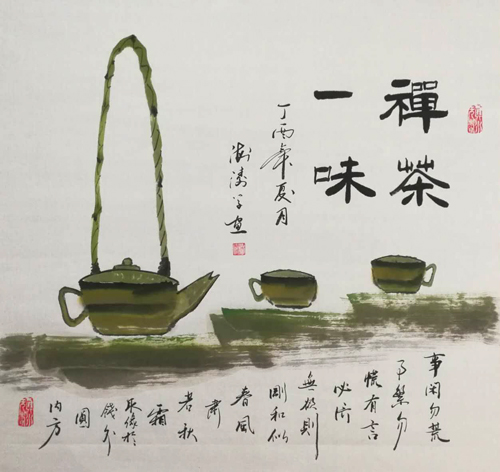 禪茶
一味
丁酉年夏月
事闲勿荒
事繁勿
慌有言
必信
無欲則
剛和似
春風
肅
若秋
霜
取像於
錢外
圓
内方